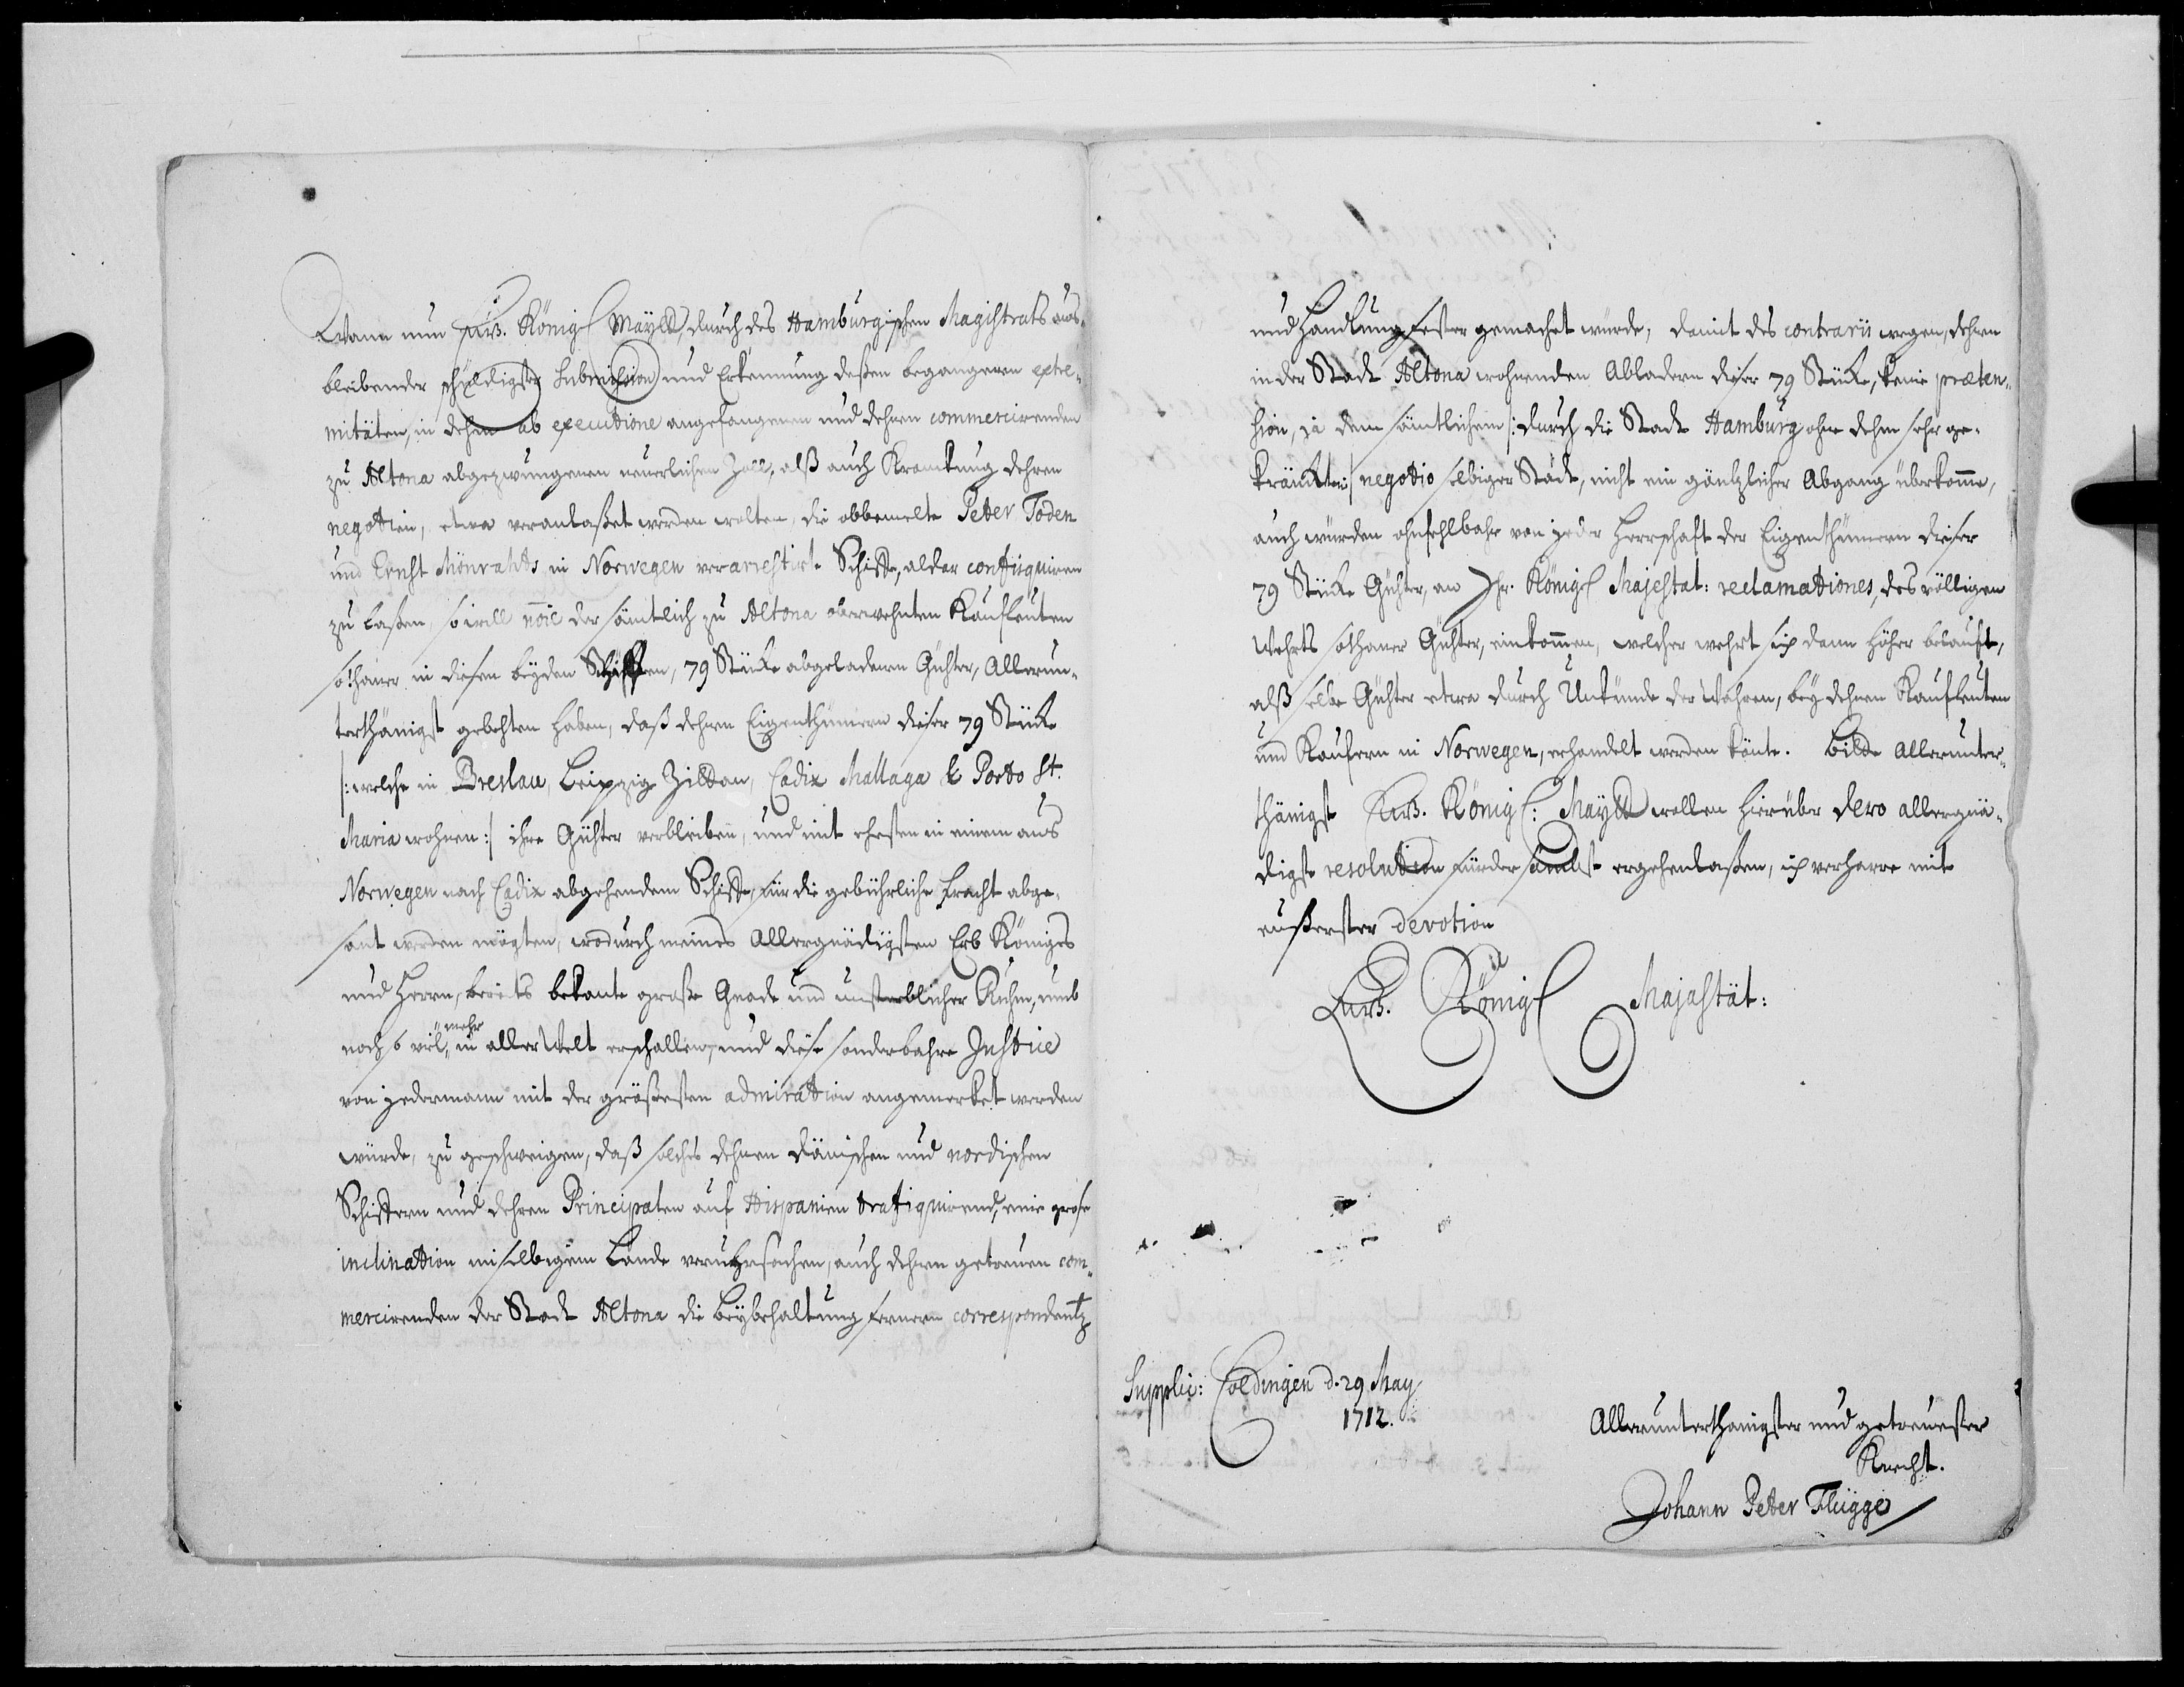 Wann nun Eurß. Königl Maytt, durch des Hamburgischen Magistrats aus-
bleibender schuldigster Submission und Erkennung deßen begangenen extre-
mitäten, in dehm ab executione angefangenen und dehren commercirenden
zu Altona abgezwungenen neuerlichen Zoll, alß auch Kranckung dehren
negotien, etwa veranlaßet werden wolten, die obbemelte Peter Toden
und Ernst Mönrahts in Norwegen verarrestirte Schiffe, aldar confisquiren
zu laßen, so will noīe der sämtlich zu Altona oberwehnten Kaufleuten
sothaner in diesen beyden Schiffen, 79 Stücke abgeladenen Gühter, Allerun-
terthänigst gebehten haben, daß dehren Eigenthümern dieser 79 Stücke
/: welche in Breslau, Leipzig Zittau, Cadix Mallaga & Porto St.
Maria wohnen :/ ihre Gühter verbleiben, und mit ehesten in einem aus
Norwegen nach Cadix abgehendem Schiffe, für die gebührliche Fracht abge-
sant werden mögten, wodurch meines Allergnädigsten Erb Königes
und Herren, bereits bekante große Gnade und unsterblicher Ruhm, umb
noch so viel mehr in aller Welt erschallen, und diese sonderbahre Justice
von jedermann mit der größesten admiration angemercket werden
würde, zu geschweigen, daß solches dehnen dänischen und nordischen
Schiffern und dehren Principalen auf Hispanien trafiquirend, eine große
inclination in selbigem Lande veruhrsachen, auch dehren getreuen com-
mercirenden der Stadt Altona die Beybehaltung fernern correspondentz
und Handlung fester gemachet würde, damit des contrarii wegen, dehren
in der Stadt Altona wohnenden Abladern dieser 79 Stücke, keine præten-
sion, ja dem sämtlichem /: durch die Stadt Hamburg ohne dehm sehr ge-
kränkten :/ negotio selbiger Stadt, nicht ein gäntzlicher Abgang überkomme,
auch würden ohnfehlbahr von jeder Herrschaft der Eigenthümern dieser
79 Stücke Gühter, an Ihr. Königl Majestat: reclamationes, des völligen
Wehrts sothaner Gühter, einkommen, welcher wehrt sich dann höher belauft,
alß selbe Gühter etwa durch Unkunde der Wahren, bey dehnen Kaufleuten
und Kaufern in Norwegen, erhandelt werden könte. Bitte Allerunter-
thänigst Eurß. Königl: Maytt wollen hierüber dero allergnä-
digste resolution fürdersamst ergehen laßen, ich verharre mit
eußerster devotion
Eurß. Königl Majestät:
Supplic: Coldingen d. 29 May
1712.
Allerunterthänigster und getreuester
Knecht.
Johann Peter Flügge